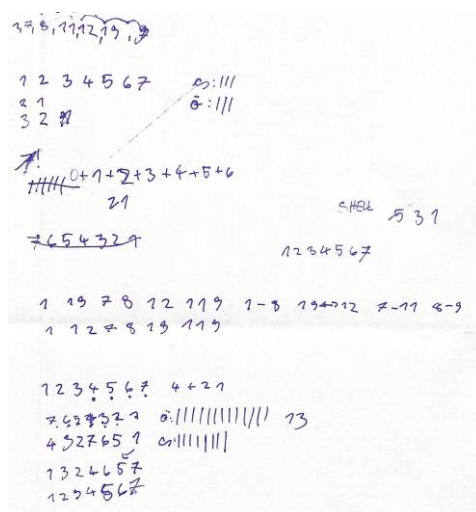 1 2 3 4 5 6 7 cs:|||
2 1 ö:|||
3 2 1
7!
0+1+2+3+4+5+6
21
SHELL 5 3 1
7 6 5 4 3 2 1
1 2 3 4 5 6 7
1 19 7 8 12 11 9 1-8 19↔12 7-11 8-9
1 12 7 8 19 11 9
1 2 3 4 5 6 7 4+21
13
4 3 2 7 6 5 1
1 3 2 4 6 5 7
1 2 3 4 5 6 7